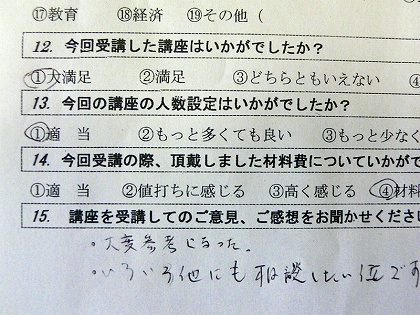 ⑰教育 ⑱経済 ⑲その他（
12. 今回受講した講座はいかがでしたか？
①大満足 ②満足 ③どちらともいえない ④
13. 今回の講座の人数設定はいかがでしたか？
①適 当 ②もっと多くても良い ③もっと少なく
14. 今回受講の際、頂戴しました材料費についていかがで
①適 当 ②値打ちに感じる ③高く感じる ④材料
15. 講座を受講してのご意見、ご感想をお聞かせくださ
・大変参考になった。
・いろいろ他にも相談したい位です